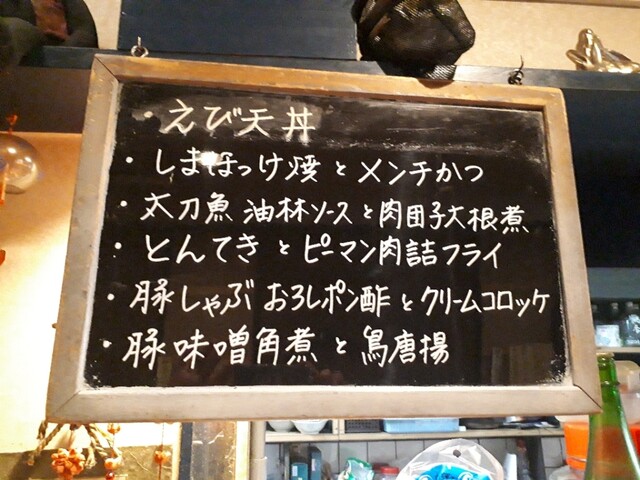 ・えび天丼
・しまほっけ焼とメンチかつ
・太刀魚 油林ソースと肉団子大根煮
・とんてきとピーマン肉詰フライ
・豚しゃぶ おろしポン酢とクリームコロッケ
・豚味噌角煮と鳥唐揚